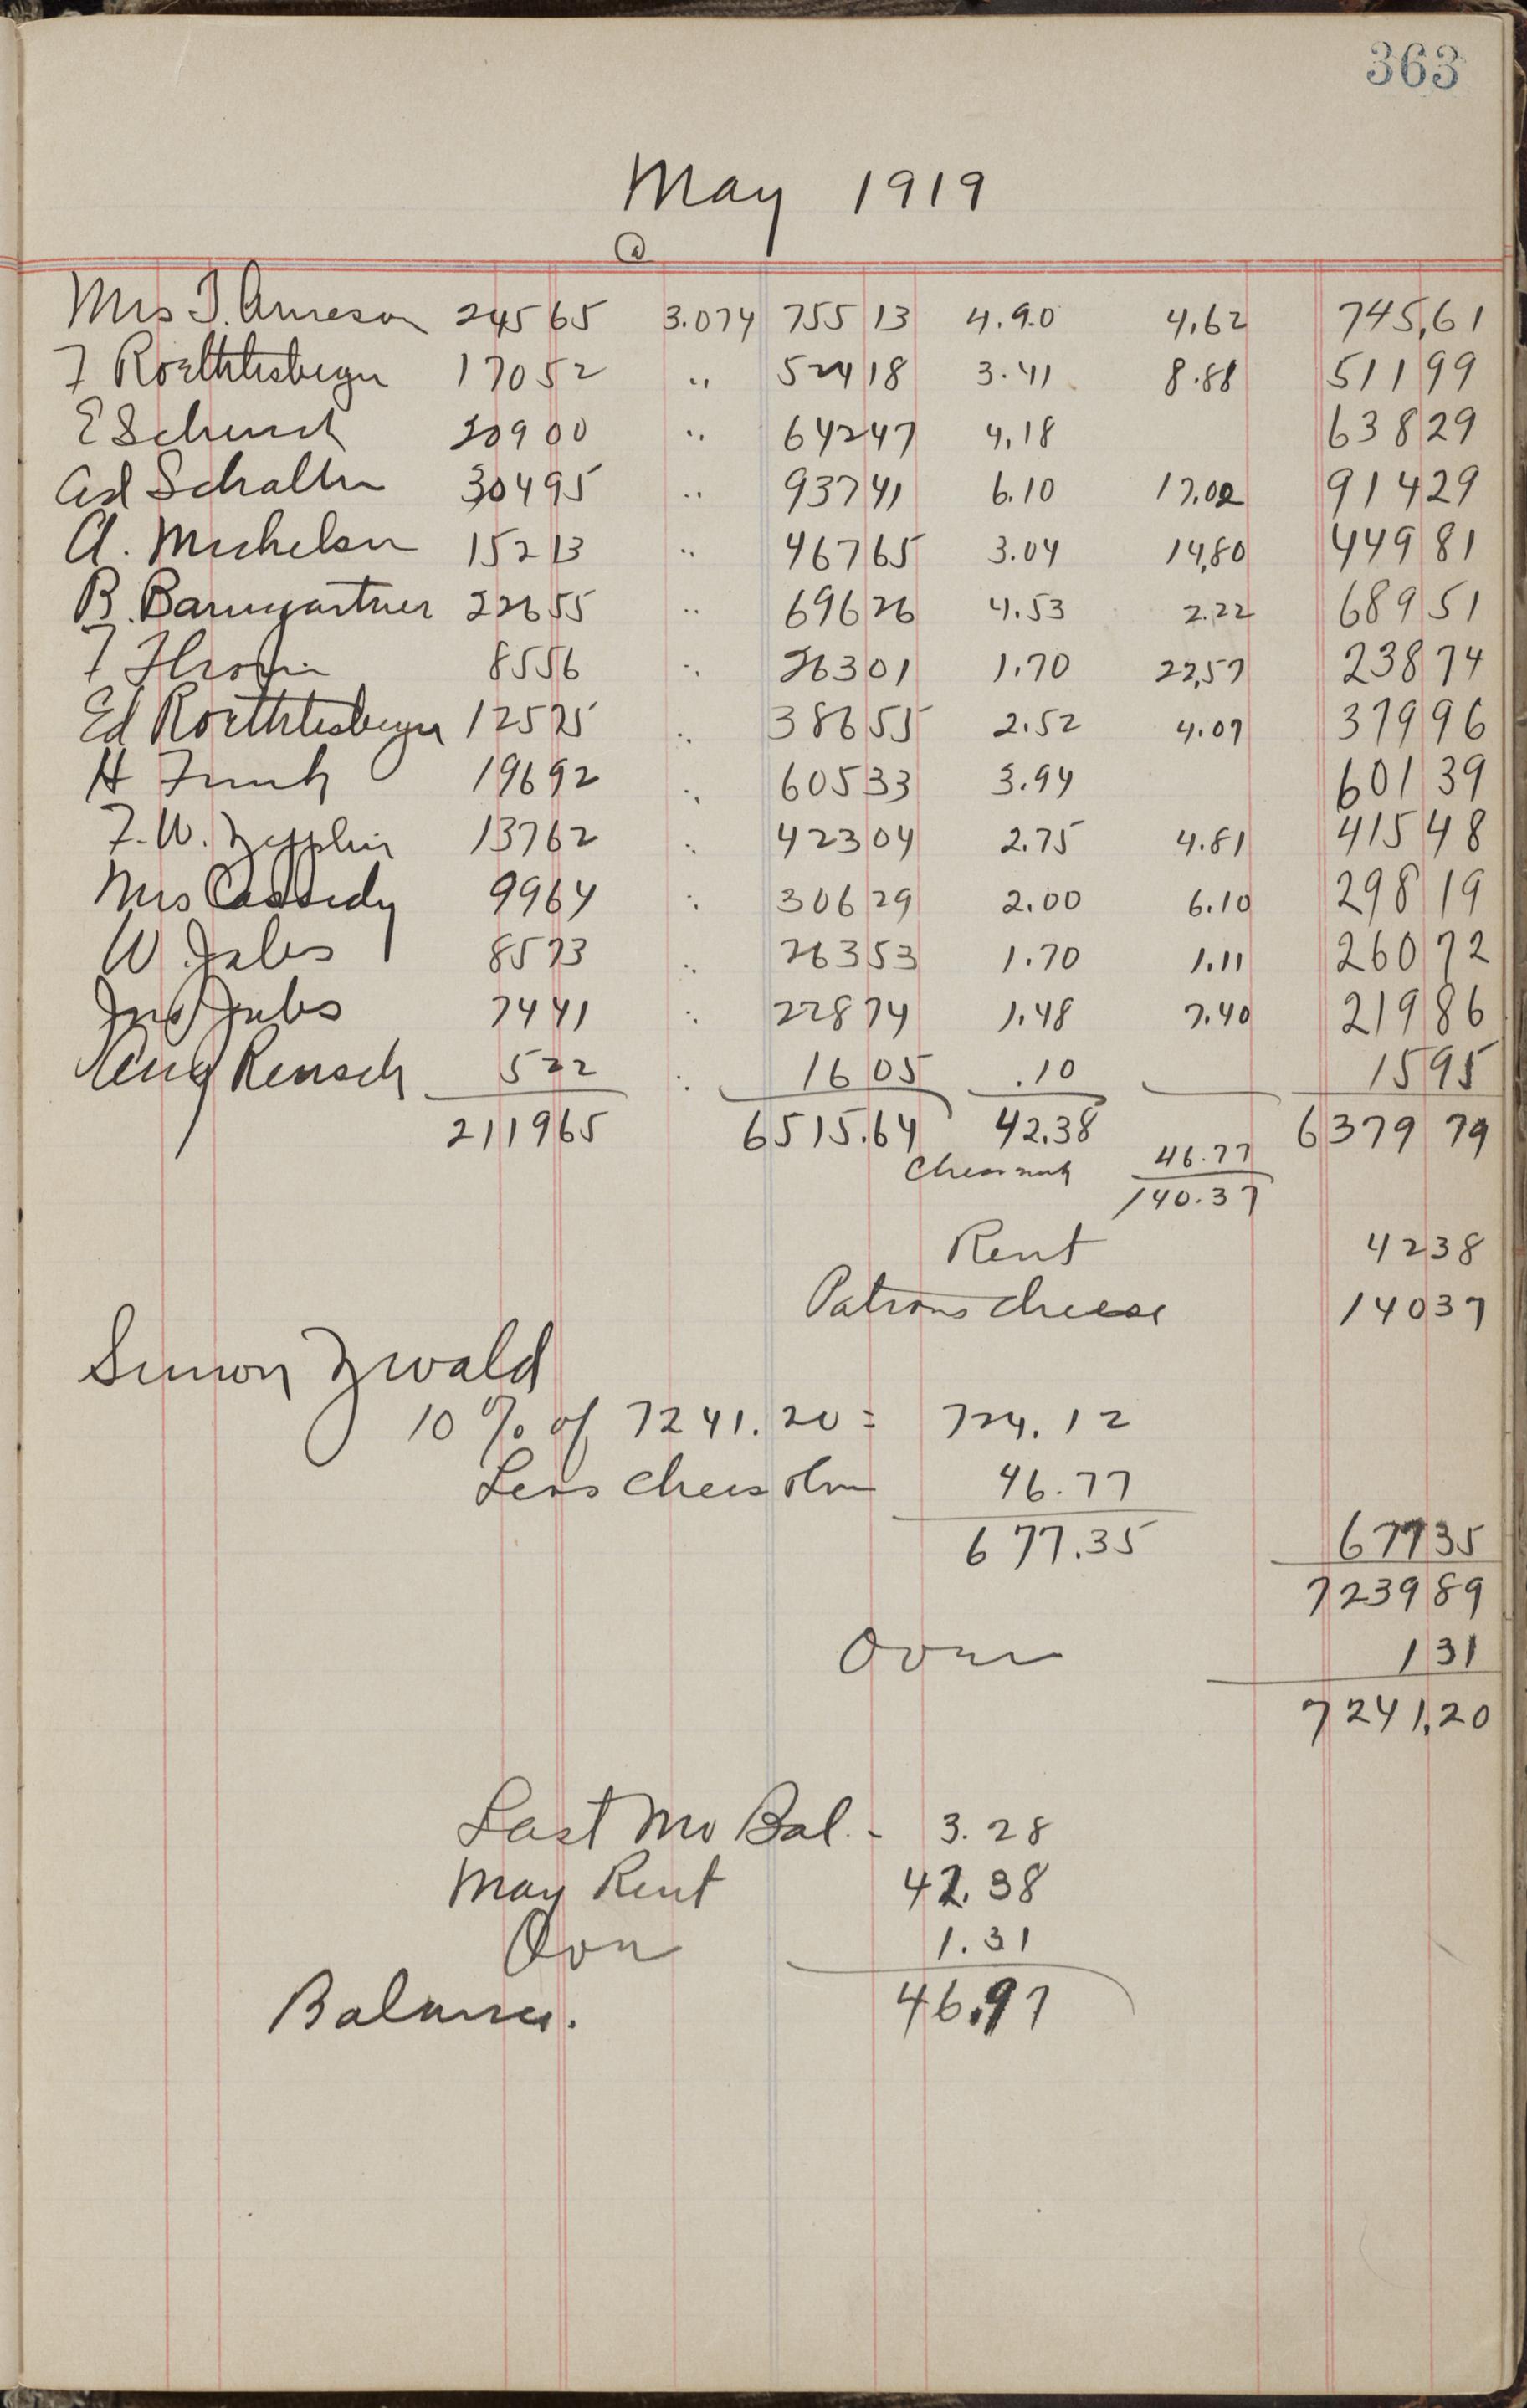 363
May 1919
@
Mrs T. Arneson 24565 3.074 755 13 4.90 4.62 745,61
F Roethlisberger 17052 " 524 18 3.41 8.88 511 99
E Schurch 20900 " 642 47 4.18 638 29
Ad Schaller 30495 " 937 41 6.10 17.02 914 29
A. Michelson 15213 " 467 65 3.04 14,80 449 81
B. Baumgartner 22655 " 696 26 4.53 2.22 689 51
F 8556 " 263 01 1.70 22,57 238 74
Ed Roethlisberger 12575 " 386 55 2.52 4.07 379 96
H Funk 19692 " 605 33 3.94 601 39
F. W. Zepplin 13762 " 423 04 2.75 4.81 415 48
Mrs Cassidy 9964 " 306 29 2.00 6.10 298 19
W. Jabs 8573 " 263 53 1.70 1.11 260 72
Jno Jabs 7441 " 228 74 1.48 7.40 219 86
Aug Rensch 522 " 16 05 .10 15 95
211965 6515.64 42.38 6379 79
46.77
140.37
Rent 42 38
Patrons cheese 140 37
Simon Zwald
10 % of 7241.20 = 724.12
Less cheese 46.77
677.35 677 35
7239 89
Over 1 31
7241,20
Last Mo Bal. - 3.28
May Rent 42.38
Over 1.31
Balance. 46.97